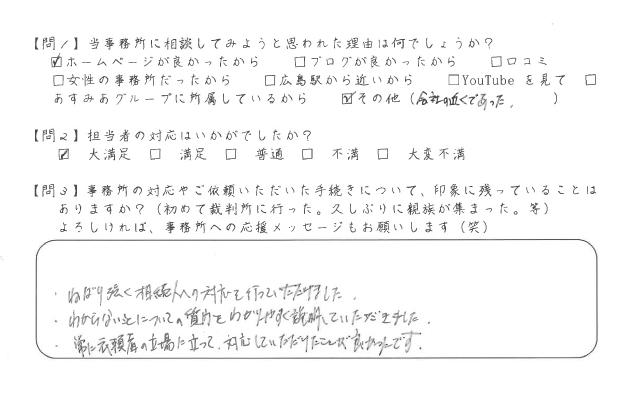 【問1】当事務所に相談してみようと思われた理由は何でしょうか?
☑ホームページが良かったから □ブログが良かったから □口コミ
□女性の事務所だったから □広島駅から近いから □YouTubeを見て □
あすみあグループに所属しているから ☑その他(会社の近くであった。)
【問2】担当者の対応はいかがでしたか?
☑ 大満足 □ 満足 □ 普通 □ 不満 □ 大変不満
【問3】事務所の対応やご依頼いただいた手続きについて、印象に残っていることは
ありますか?(初めて裁判所に行った。久しぶりに親族が集まった。等)
よろしければ、事務所への応援メッセージもお願いします(笑)
・ねばり強く相続人への対応を行っていただけました。
・わからないことについての質問をわかりやすく説明していただきました。
・常に依頼者の立場に立って、対応していただいたことが良かったです。